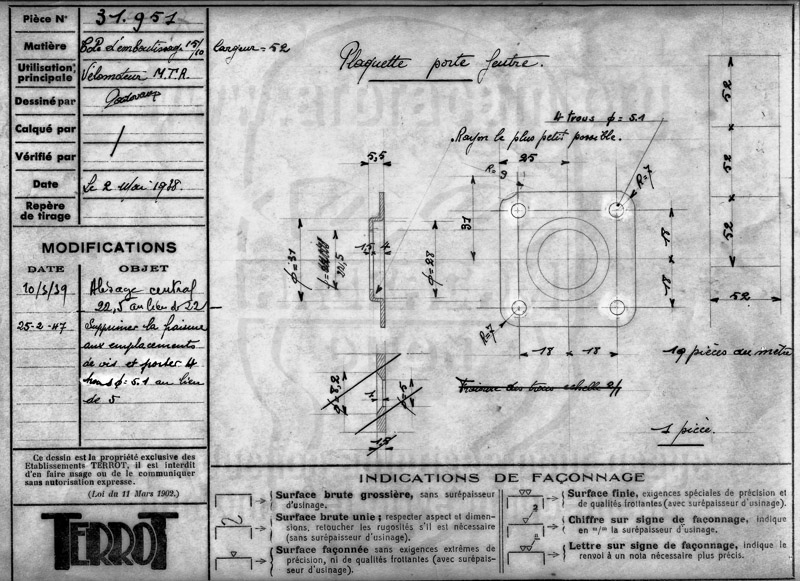 Pièce N° 31.951
Matière Tole d'emboutissage 15/10 largeur = 52
Utilisation principale Vélomoteur M.T.R.
Dessiné par
Calqué par
Vérifié par
Date Le 2 Mai 1938.
Repère de tirage
MODIFICATIONS
DATE OBJET
10/3/39 Alésage central
22,5 au lieu de 22
25-2-47 Supprimer la fraisure
aux emplacements
de vis et porter 4
trous φ= 5.1 au lieu
de 5
Ce dessin est la propriété exclusive des
Etablissements TERROT, il est interdit
d'en faire usage ou de le communiquer
sans autorisation expresse.
(Loi du 11 Mars 1902.)
TERROT
Plaquette porte feutre.
4 trous φ = 5.1
Rayon le plus petit possible.
5,5
25
R=9
R=7
31
φ=31
22,5
15
4
φ=28
18
18
R=7
18
18
52
52
52
52
19 pièces au mètre
φ=8,2
1,5
Fraisure des trous echelle 2/1
1 pièce.
INDICATIONS DE FAÇONNAGE
Surface brute grossière, sans surépaisseur
d'usinage.
Surface brute unie; respecter aspect et dimen-
sions, retoucher les rugosités s'il est nécessaire
(sans surépaisseur d'usinage).
Surface façonnée sans exigences extrêmes de
précision, ni de qualités frottantes (avec surépais-
seur d'usinage).
Surface finie, exigences spéciales de précision et
de qualités frottantes (avec surépaisseur d'usinage).
2
Chiffre sur signe de façonnage, indique
en m/m la surépaisseur d'usinage.
Lettre sur signe de façonnage, indique le
renvoi à un nota nécessaire plus précis.